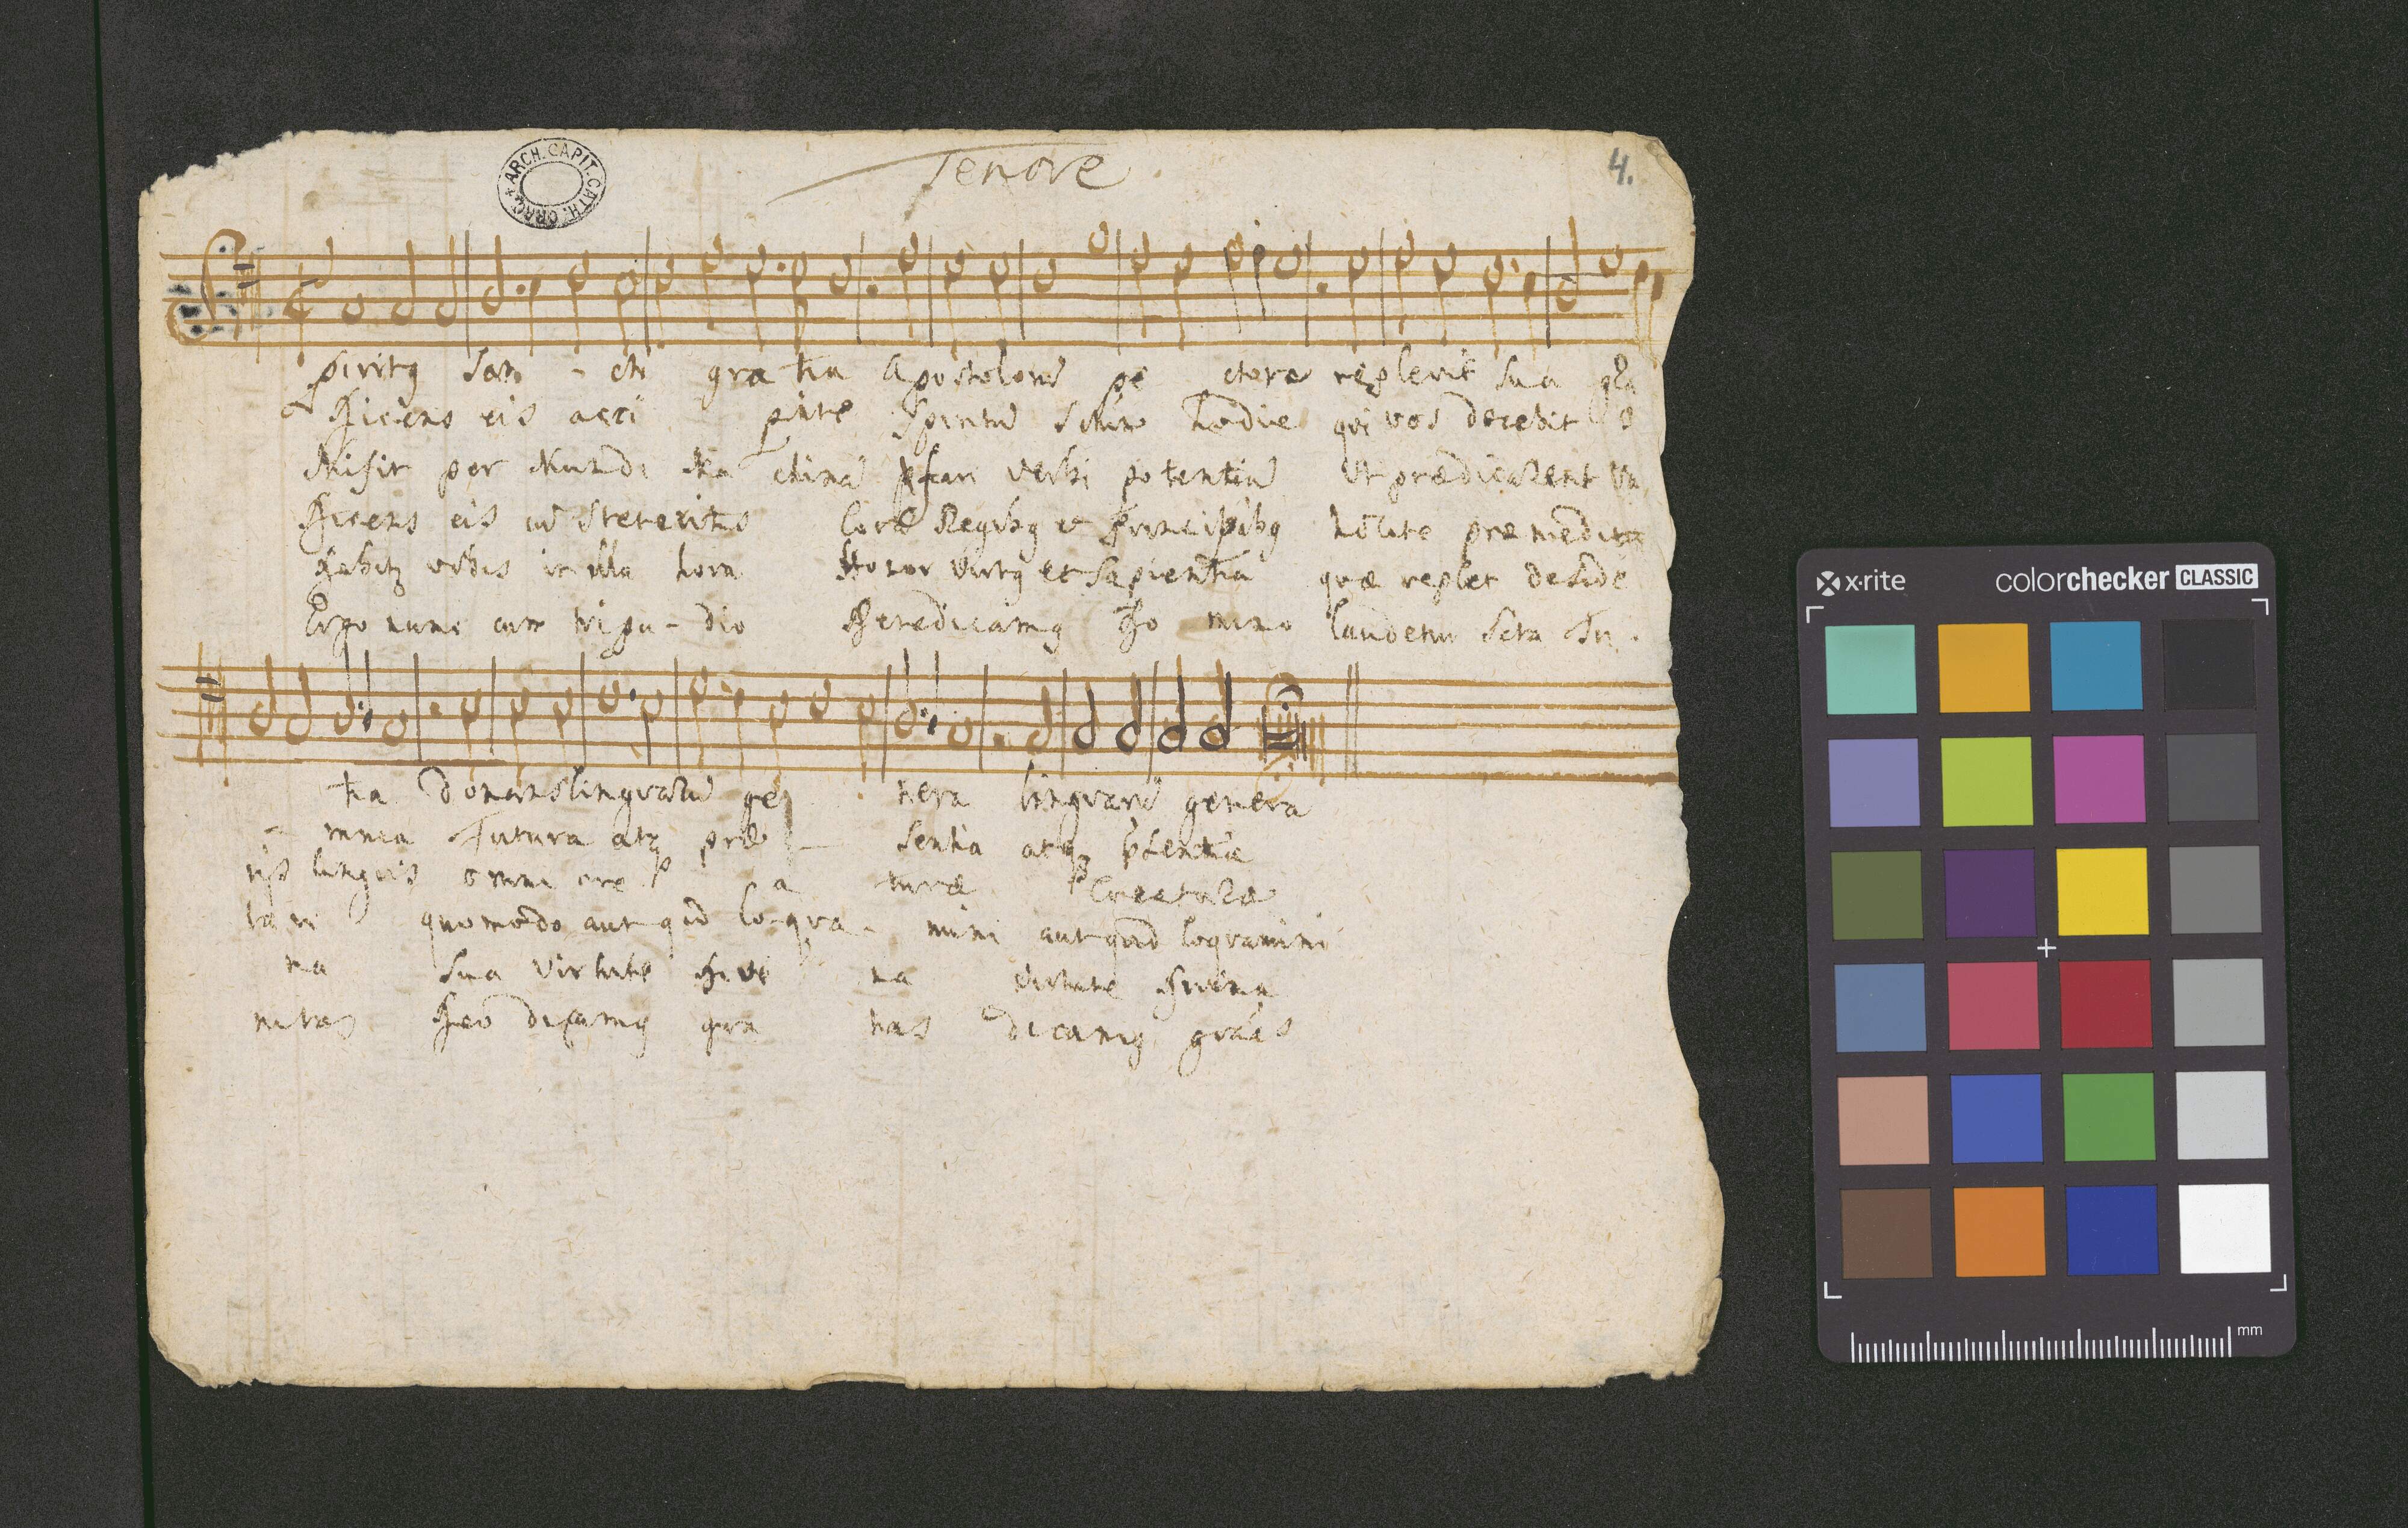 Tenore
4.
ARCH. CAPIT. CATH. CRAC.
Spiritq San - cti gra tia Apostolorū pe ctora replevit sua gra
Dicens eis acci pite Spiritū Sctum hodie qui vos docebit o
Misit per Mundi Ma chinā verbi potentiā Ut prædicarent va
Dicens eis cū steteritis Coræ Regibq et Principibq nolite præmedita
vobis in illa hora Honor Virtq et Sapientia quæ replet de side
Ergo nunc cum tripu - dio Benedicamq Do mino laudetur Scta Tri.
tia donans linguarū ge nera linguarū genera
- mnia Futura atq præ - sentia atq psentia
rijs linguis omni cre a turæ Creaturæ
tari quomodo aut qid lo-qva- mini aut quid loqvamini
na sua virtute divi na virtute divina
nitas Deo dicamq gra tias dicamq gratias
x·rite colorchecker CLASSIC
mm